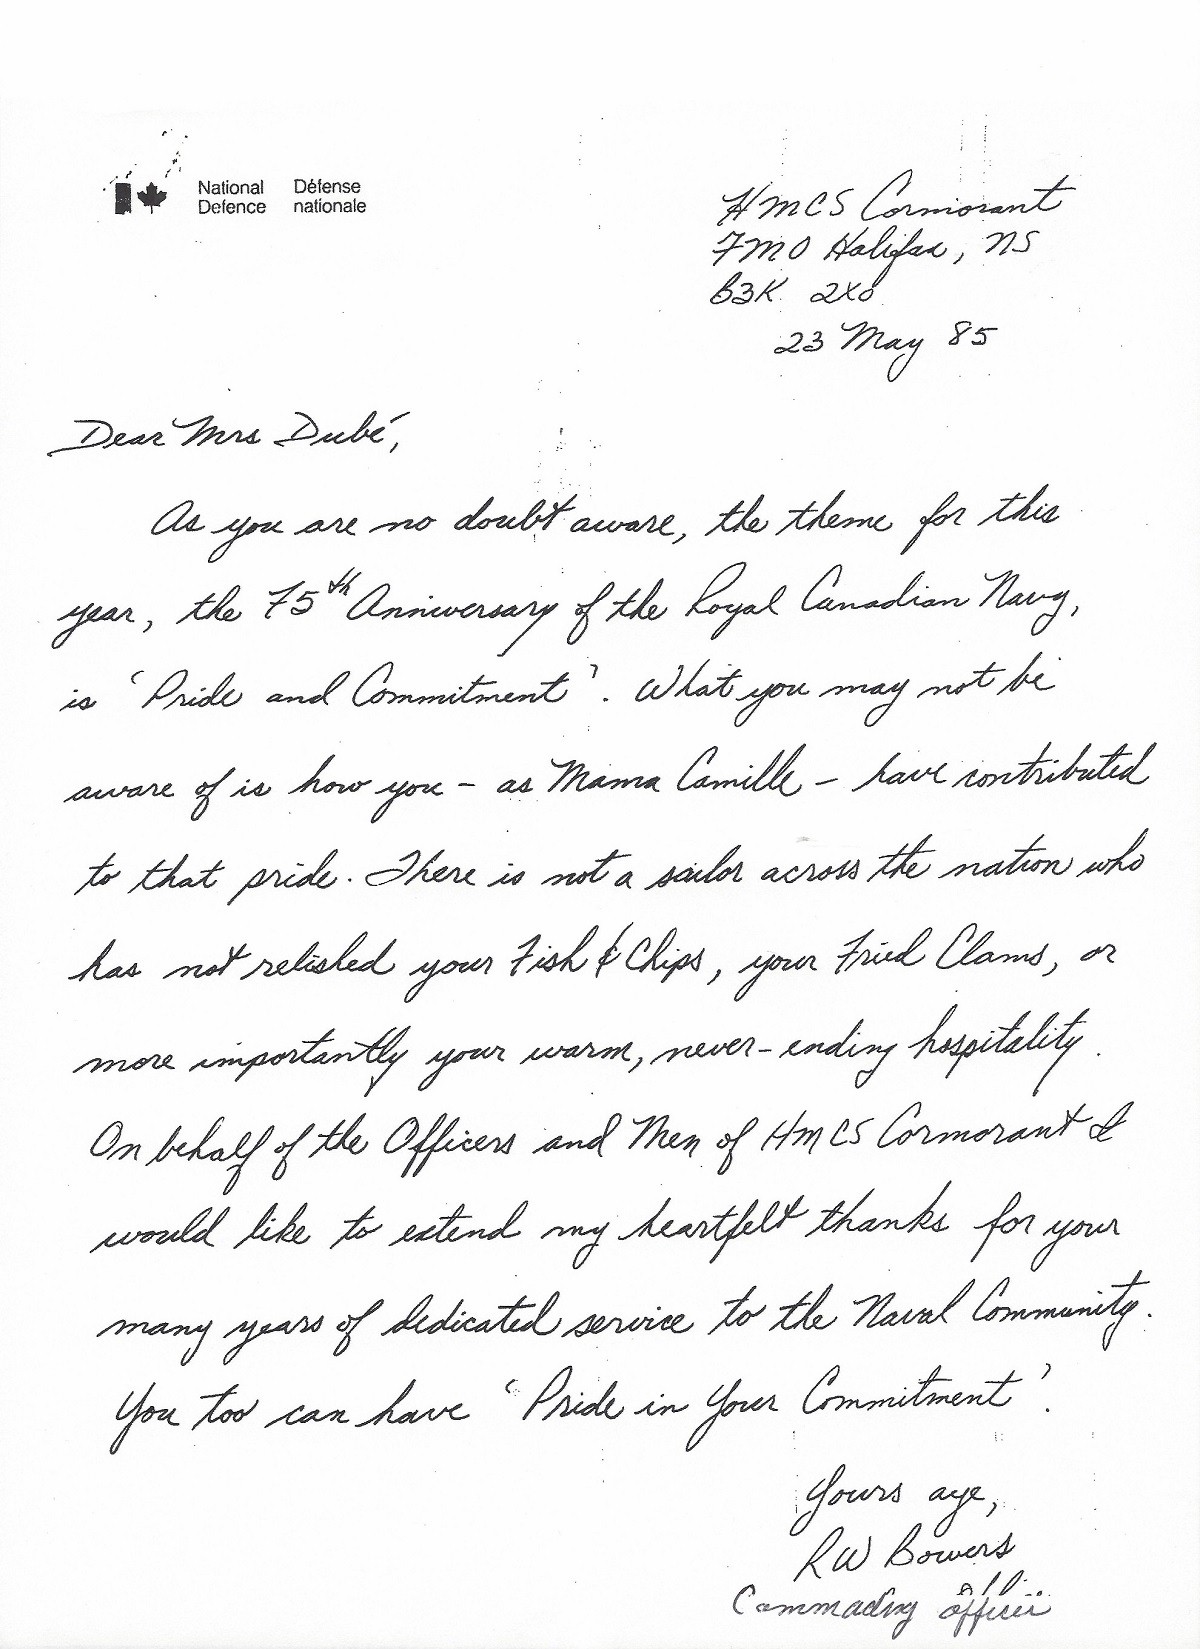 National Défense
Defence nationale
HMCS Cormorant
FMO Halifax, NS
B3K 2X0
23 May 85
Dear Mrs Dubé,
As you are no doubt aware, the theme for this
year, the 75th Anniversary of the Royal Canadian Navy,
is 'Pride and Commitment'. What you may not be
aware of is how you - as Mama Camille - have contributed
to that pride. There is not a sailor across the nation who
has not relished your Fish & Chips, your Fried Clams, or
more importantly your warm, never-ending hospitality.
On behalf of the Officers and Men of HMCS Cormorant I
would like to extend my heartfelt thanks for your
many years of dedicated service to the Naval Community.
You too can have 'Pride in Your Commitment'.
Yours aye,
RW Bowers
Commading officer